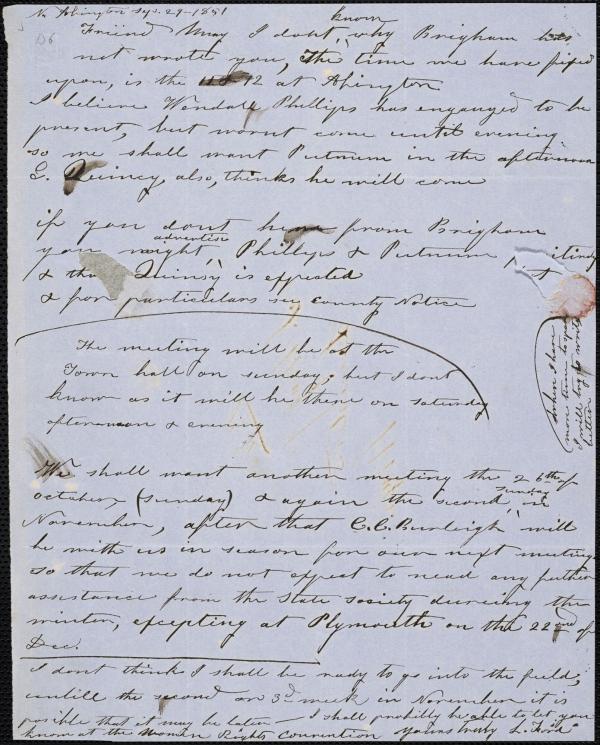 No Abington Sep. 29-1851
know
Friend May I dont why Brigham has
not wrote you, The time we have fixed
upon, is the 12 at Abington
I believe Wendall Phillips has engauged to be
present, but wornt come until evening
so we shall want Putnum in the afternoon
E. Quincy, also, thinks he will come
if you dont hear from Brigham
advertise
you might Phillips & Putnum
& that Quinsy is expected
& for particulars see County Notice
The meeting will be at the
Town hall on sunday; but I dont
know as it will be there on Saturday
afternoon & evening
when I have
more time to you
I will try to write
better
We shall want another meeting the 26th of
sunday
october, (sunday) & again the second in
November, after that C.C. Burleigh will
be with us in season for our next meeting
so that we do not expect to nead any further
assistance from the State Society dureing the
winter, excepting at Plymouth on the 22nd of
Dec.
I dont think I shall be ready to go into the field,
untill the second or 3d week in November it is
posible that it may be later - I shall probilly be able to let you
know at the Women Rights Convention Yours truly L. Ford